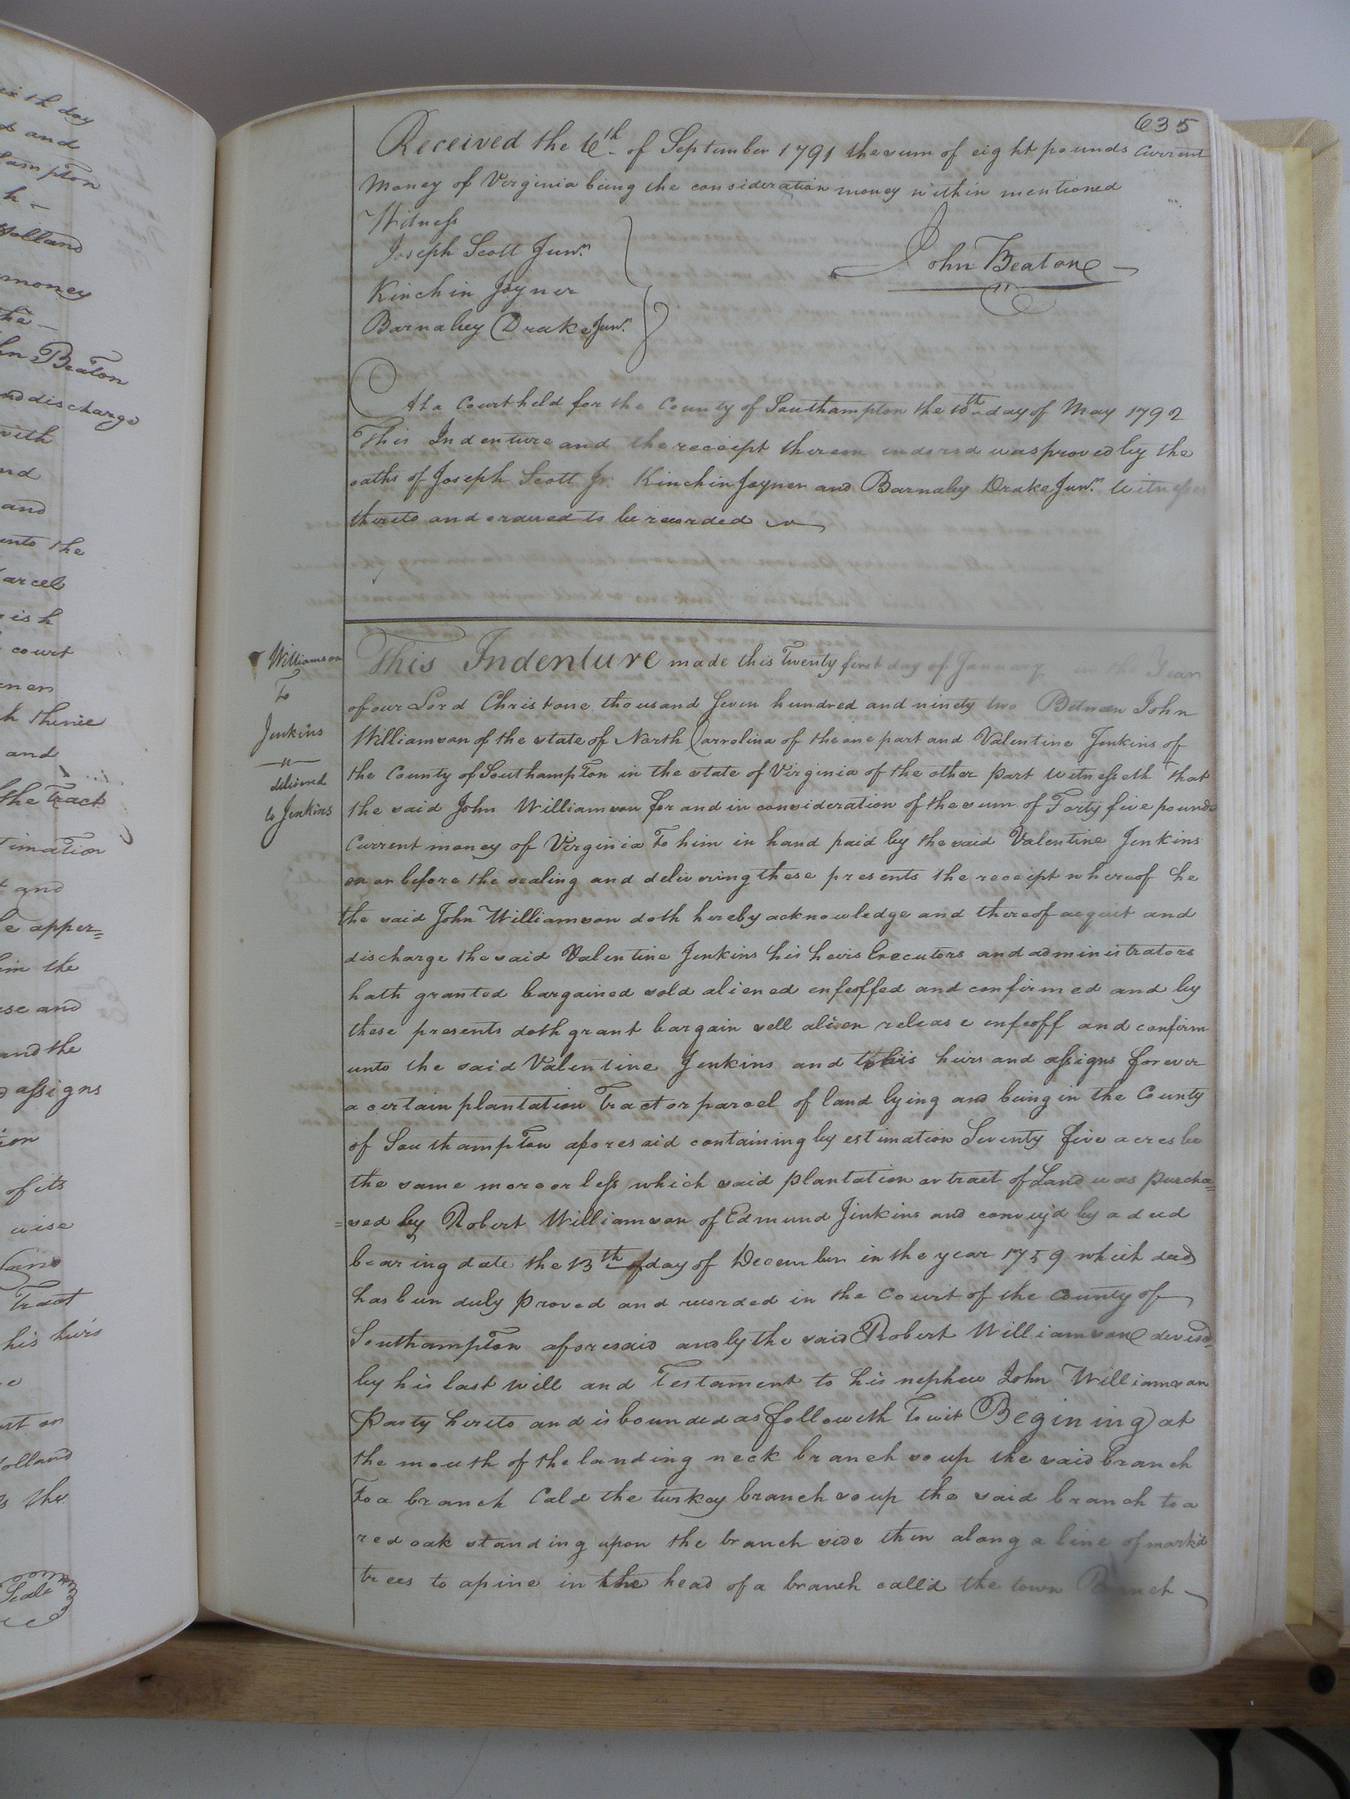 635
Received the 6th of September 1791 the sum of eight pounds Current
Money of Virginia being the consideration money within mentioned
Witness
Joseph Scott Junr.
John Beaton
Kinchin Joyner
Barnabey Drake Junr.
At a Court held for the County of Southampton the 10th day of May 1792
This Indenture and the receipt thereon indorsd was proved by the
oaths of Joseph Scott Jr. Kinchin Joyner and Barnaby Drake Junr. Witnesses
thereto and ordered to be recorded
Williamson
To
Jenkins
delivered
to Jenkins
This Indenture made this Twenty first day of January in the Year
of our Lord Christ one thousand Seven hundred and ninety two Between John
Williamson of the state of North Carrolina of the one part and Valentine Jenkins of
the County of Southampton in the state of Virginia of the other part Witnesseth That
the said John Williamson for and in consideration of the sum of Forty five pounds
Current money of Virginia To him in hand paid by the said Valentine Jenkins
on or before the sealing and delivering these presents the receipt whereof he
the said John Williamson doth hereby acknowledge and thereof acquit and
discharge the said Valentine Jenkins his heirs Executors and administrators
hath granted bargained sold aliened enfeoffed and confirmed and by
these presents doth grant bargain sell alien release enfeoff and confirm
unto the said Valentine Jenkins and to his heirs and assigns forever
a certain plantation Tract or parcel of land lying and being in the County
of Southampton aforesaid containing by estimation Seventy five acres be
the same more or less which said plantation or tract of Land was purcha=
=sed by Robert Williamson of Edmund Jinkins and convey'd by a deed
bearing date the 13th of day of December in the year 1759 which deed
has been duly proved and recorded in the Court of the County of
Southampton aforesaid and by the said Robert Williamson devised
by his last will and Testament to his nephew John Williamson
party hereto and is bounded as followeth Towit Begining at
the mouth of the landing neck branch so up the said branch
To a branch Cald the turkey branch so up the said branch to a
red oak standing upon the branch side then along a line of mark'd
trees to a pine in the head of a branch call'd the town Branch